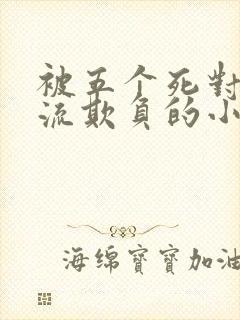 被五个死對
流欺負的小
海绵寶寶加油